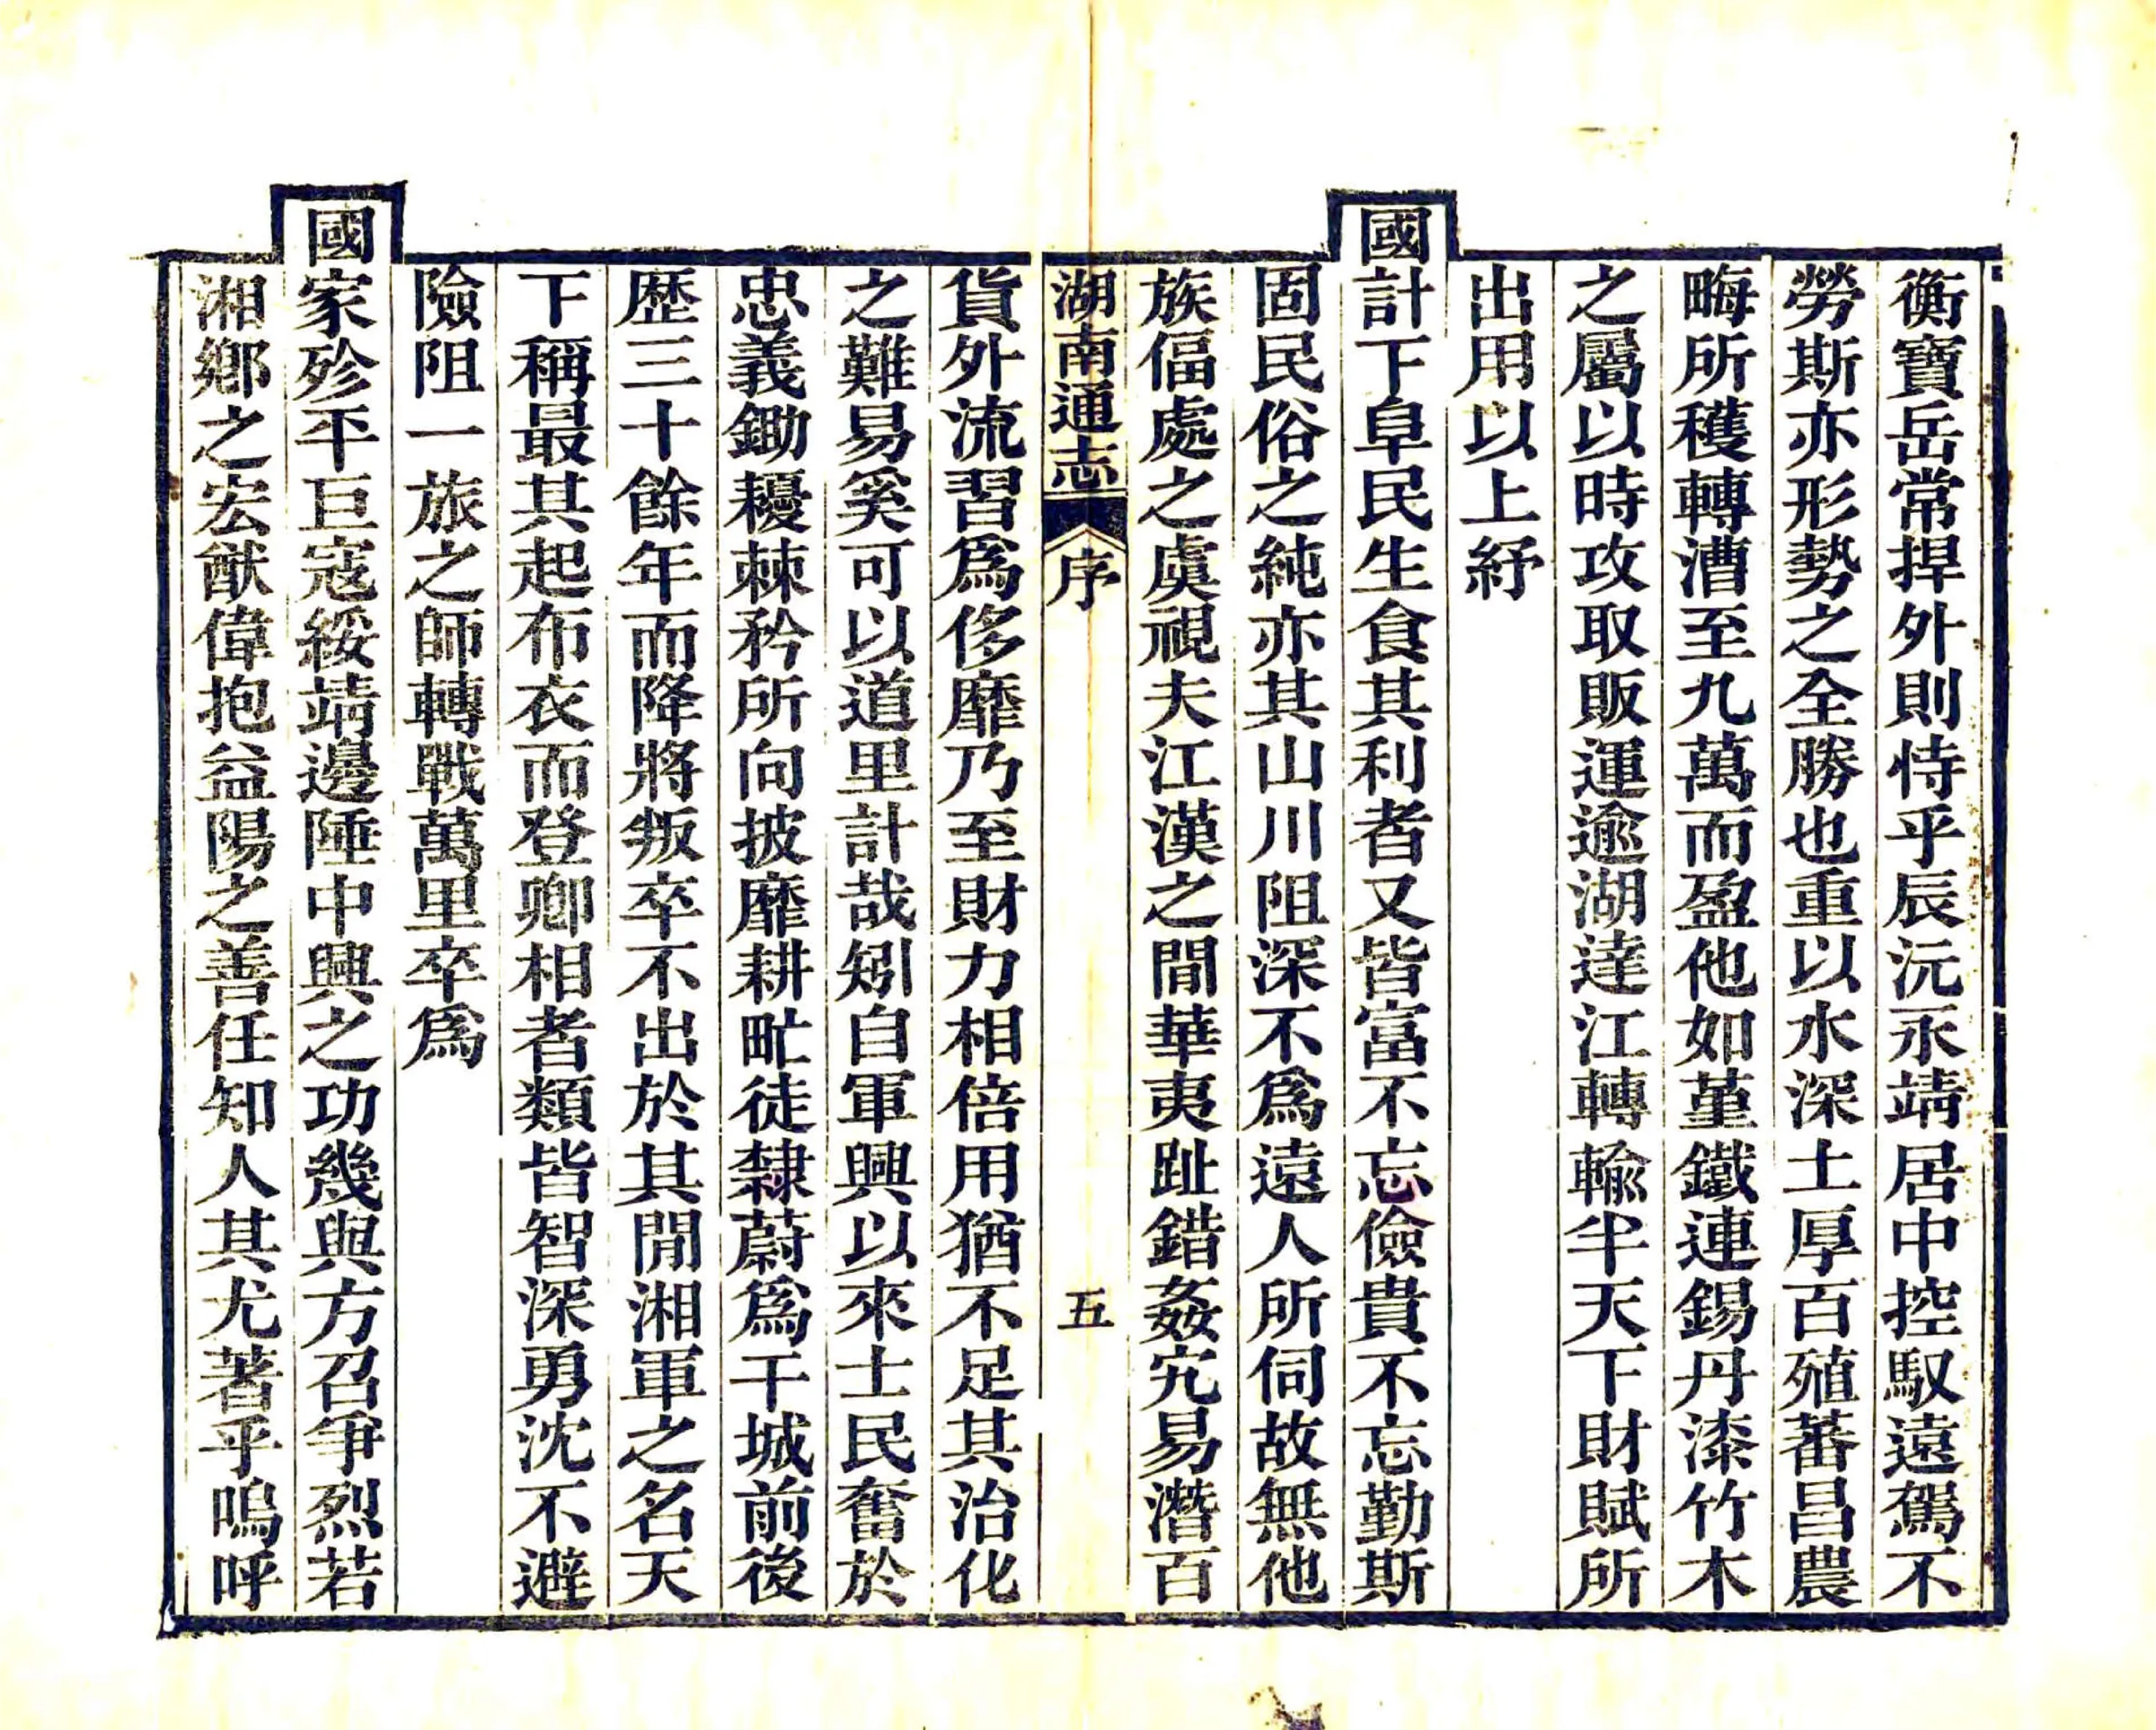 衡寶岳常捍外則恃乎辰沅永靖居中控馭遠駕不
勞斯亦形勢之全勝也重以水深土厚百殖蕃昌農
畮所穫轉漕至九萬而盈他如堇鐵連錫丹漆竹木
之屬以時攻取販運逾湖達江轉輸半天下財賦所
出用以上紓
國計下阜民生食其利者又皆富不忘儉貴不忘勤斯
固民俗之純亦其山川阻深不為遠人所伺故無他
族偪處之虞視夫江漢之間華夷趾錯姦宄易潛百
湖南通志 序 五
貨外流習爲侈靡乃至財力相倍用猶不足其治化
之難易奚可以道里計哉矧自軍興以來士民奮於
忠義鋤耰棘矜所向披靡耕甿徒隸蔚爲干城前後
歷三十餘年而降將叛卒不出於其閒湘軍之名天
下稱最其起布衣而登卿相者類皆智深勇沈不避
險阻一旅之師轉戰萬里卒爲
國家殄平巨寇綏靖邊陲中興之功幾與方召爭烈若
湘鄉之宏猷偉抱益陽之善任知人其尤著乎嗚呼